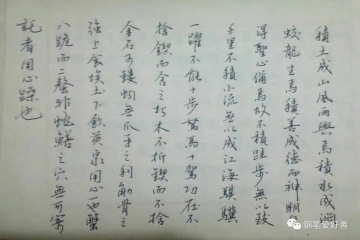 積土成山風雨興焉積水成淵
蛟龍生焉積善成德而神明
得聖心備焉故不積跬步無以致
千里不積小流無以成江海騏驥
一躍不能十步駑馬十駕功在不
捨鍥而舍之朽木不折鍥而不捨
金石可鏤蚓無爪牙之利筋骨之
強上食埃土下飲黃泉用心一也蟹
八跪而二螯非蛇鱔之穴無可寄
託者用心躁也
钢笔爱好者